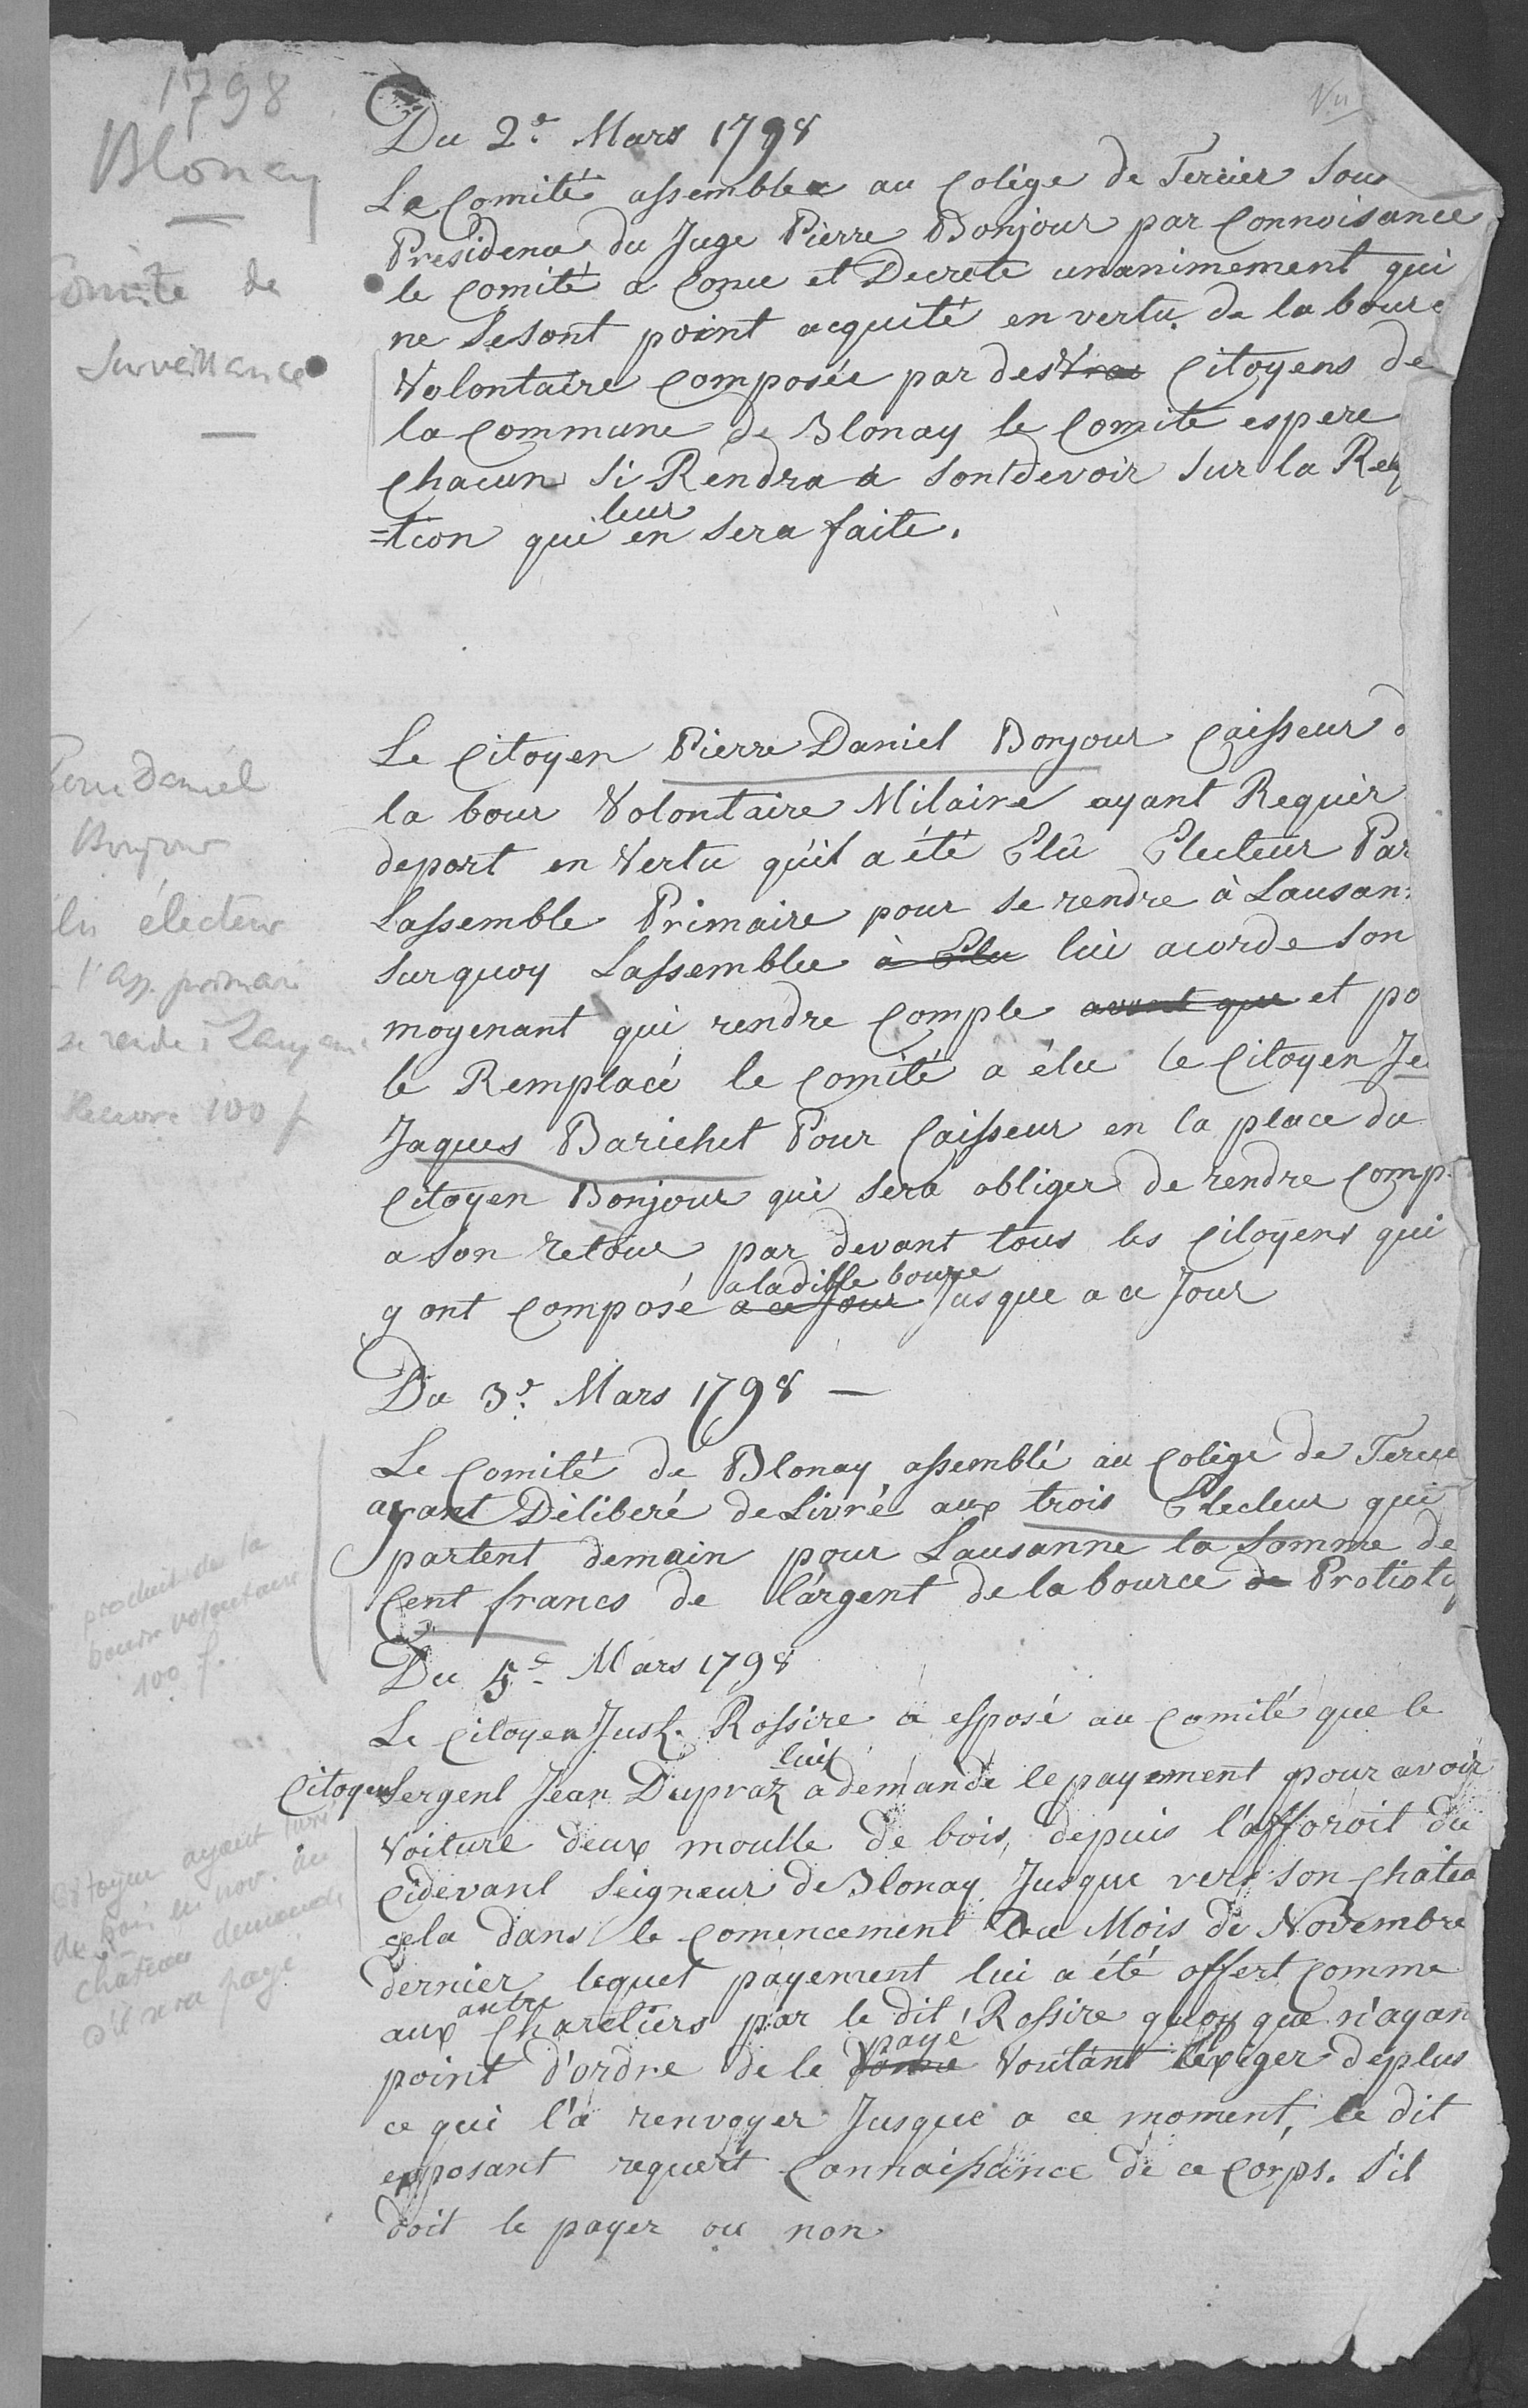 1798
Blonay
Comité de
Surveillance
Du 2e. Mars 1798
Le Comité assemblee au Colège de Terrier Sous
Presidence du Juge Pierre Bonjour par Connoisance
le Comité a Conu et Decrete unanimement qui
ne Sesont point acquité en vertu de la bource
Volontaire Composée par des Citoyens de
la Commune de Blonay le Comite espere
Chacun Si Rendra a Son devoir Sur la Req
=tion qui leur en Sera faite.
Pierre Daniel
Bonjour
élu électeur
l'ass. primaire
se rendre à Lausanne
100 f
Le Citoyen Pierre Daniel Bonjour Caisseur d
la bour Volontaire Milaire ayant Requir
deport en Vertu quil a été Elû Electeur Par
Lassemble Primaire pour se rendre à Lausan
Surquoy Lassemblee à Elu lui acorde Son
moyenant qui rendre Comple avant que et po
le Remplacé le Comité a élu le Citoyen Je
Jaques Barichet Pour Caisseur en la place du
Citoyen Bonjour qui Sera obliger de rendre Comp
a Son retour par devant tous les Citoyens qui
y ont Composé a ce Jour aladitte bource Jusque a ce Jour
Du 3e. Mars 1798 —
Le Comité de Blonay assemblé au Colège de Tercie
ayant Déliberé de Livré aux trois Electeur qui
partent demain pour Lausanne la Somme de
Cent francs de l'argent de la bource de
produit de la
bourse volontaire
100 f.
Du 5e. Mars 1798
Le Citoyen Jush. Rossire a esposé au Comité que le
Citoyen Sergent Jean Dupraz lui a demandé le payement pour avoir
Voituré deux moulle de bois, depuis l'afforoit du
Cidevant Seigneur de Blonay Jusque vers son Chatea
cela dans le Comencement du Mois de Novembre
dernier lequel payement lui a été offert Comme
aux autre Charetiers par le dit Rossire quoy que n'ayan
point d'ordre de le payé Voulant lexiger deplus
ce qui l'a renvoyer Jusque a ce moment, le dit
exposant requert Connaissance de ce Corps. S'il
doit le payer ou non
Citoyen ayant livré
du bois en nov. au
château demande
s'il sera payé